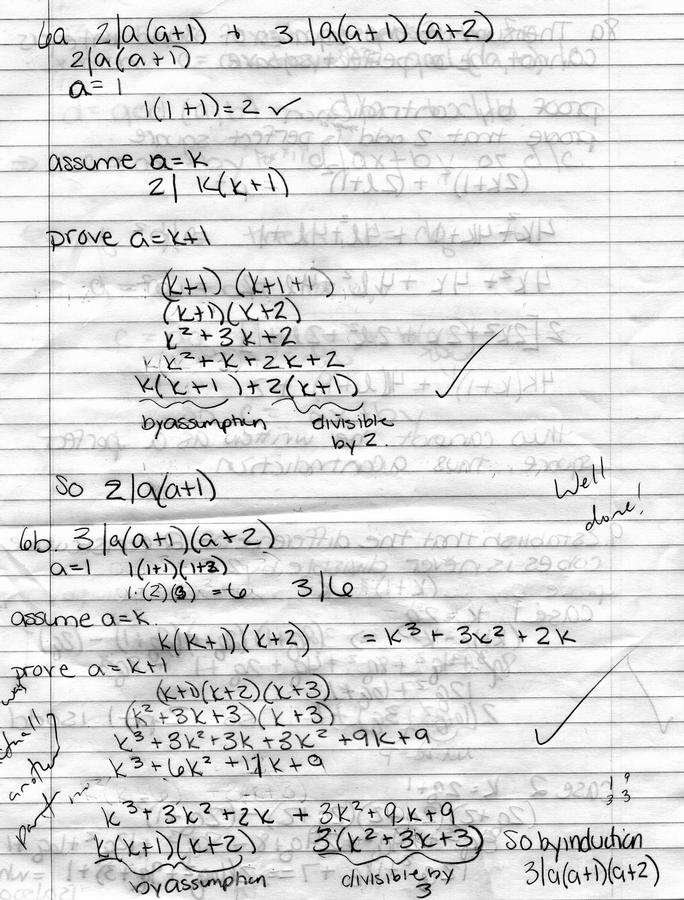 6a. 2|a(a+1) + 3|a(a+1)(a+2)
2|a(a+1)
a=1
1(1+1)=2 ✓
assume a=k
2| k(k+1)
prove a=k+1
(k+1) (k+1+1)
(k+1)(k+2)
k² + 3k + 2
k² + k + 2k + 2
k(k+1) + 2(k+1) ✓
by assumption divisible by 2.
So 2|a(a+1)
Well done!
6b. 3|a(a+1)(a+2)
a=1 1(1+1)(1+2)
1·(2)(3) = 6 3|6
assume a=k.
k(k+1)(k+2) = k³ + 3k² + 2k
prove a=k+1
(k+1)(k+2)(k+3)
(k²+3k+3)(k+3)
k³+3k²+3k+3k²+9k+9 ✓
k³+6k²+11k+9
small
another
part
k³+3k²+2k + 3k²+9k+9
k(k+1)(k+2) 3(k²+3k+3) So by induction
by assumption divisible by 3 3|a(a+1)(a+2)